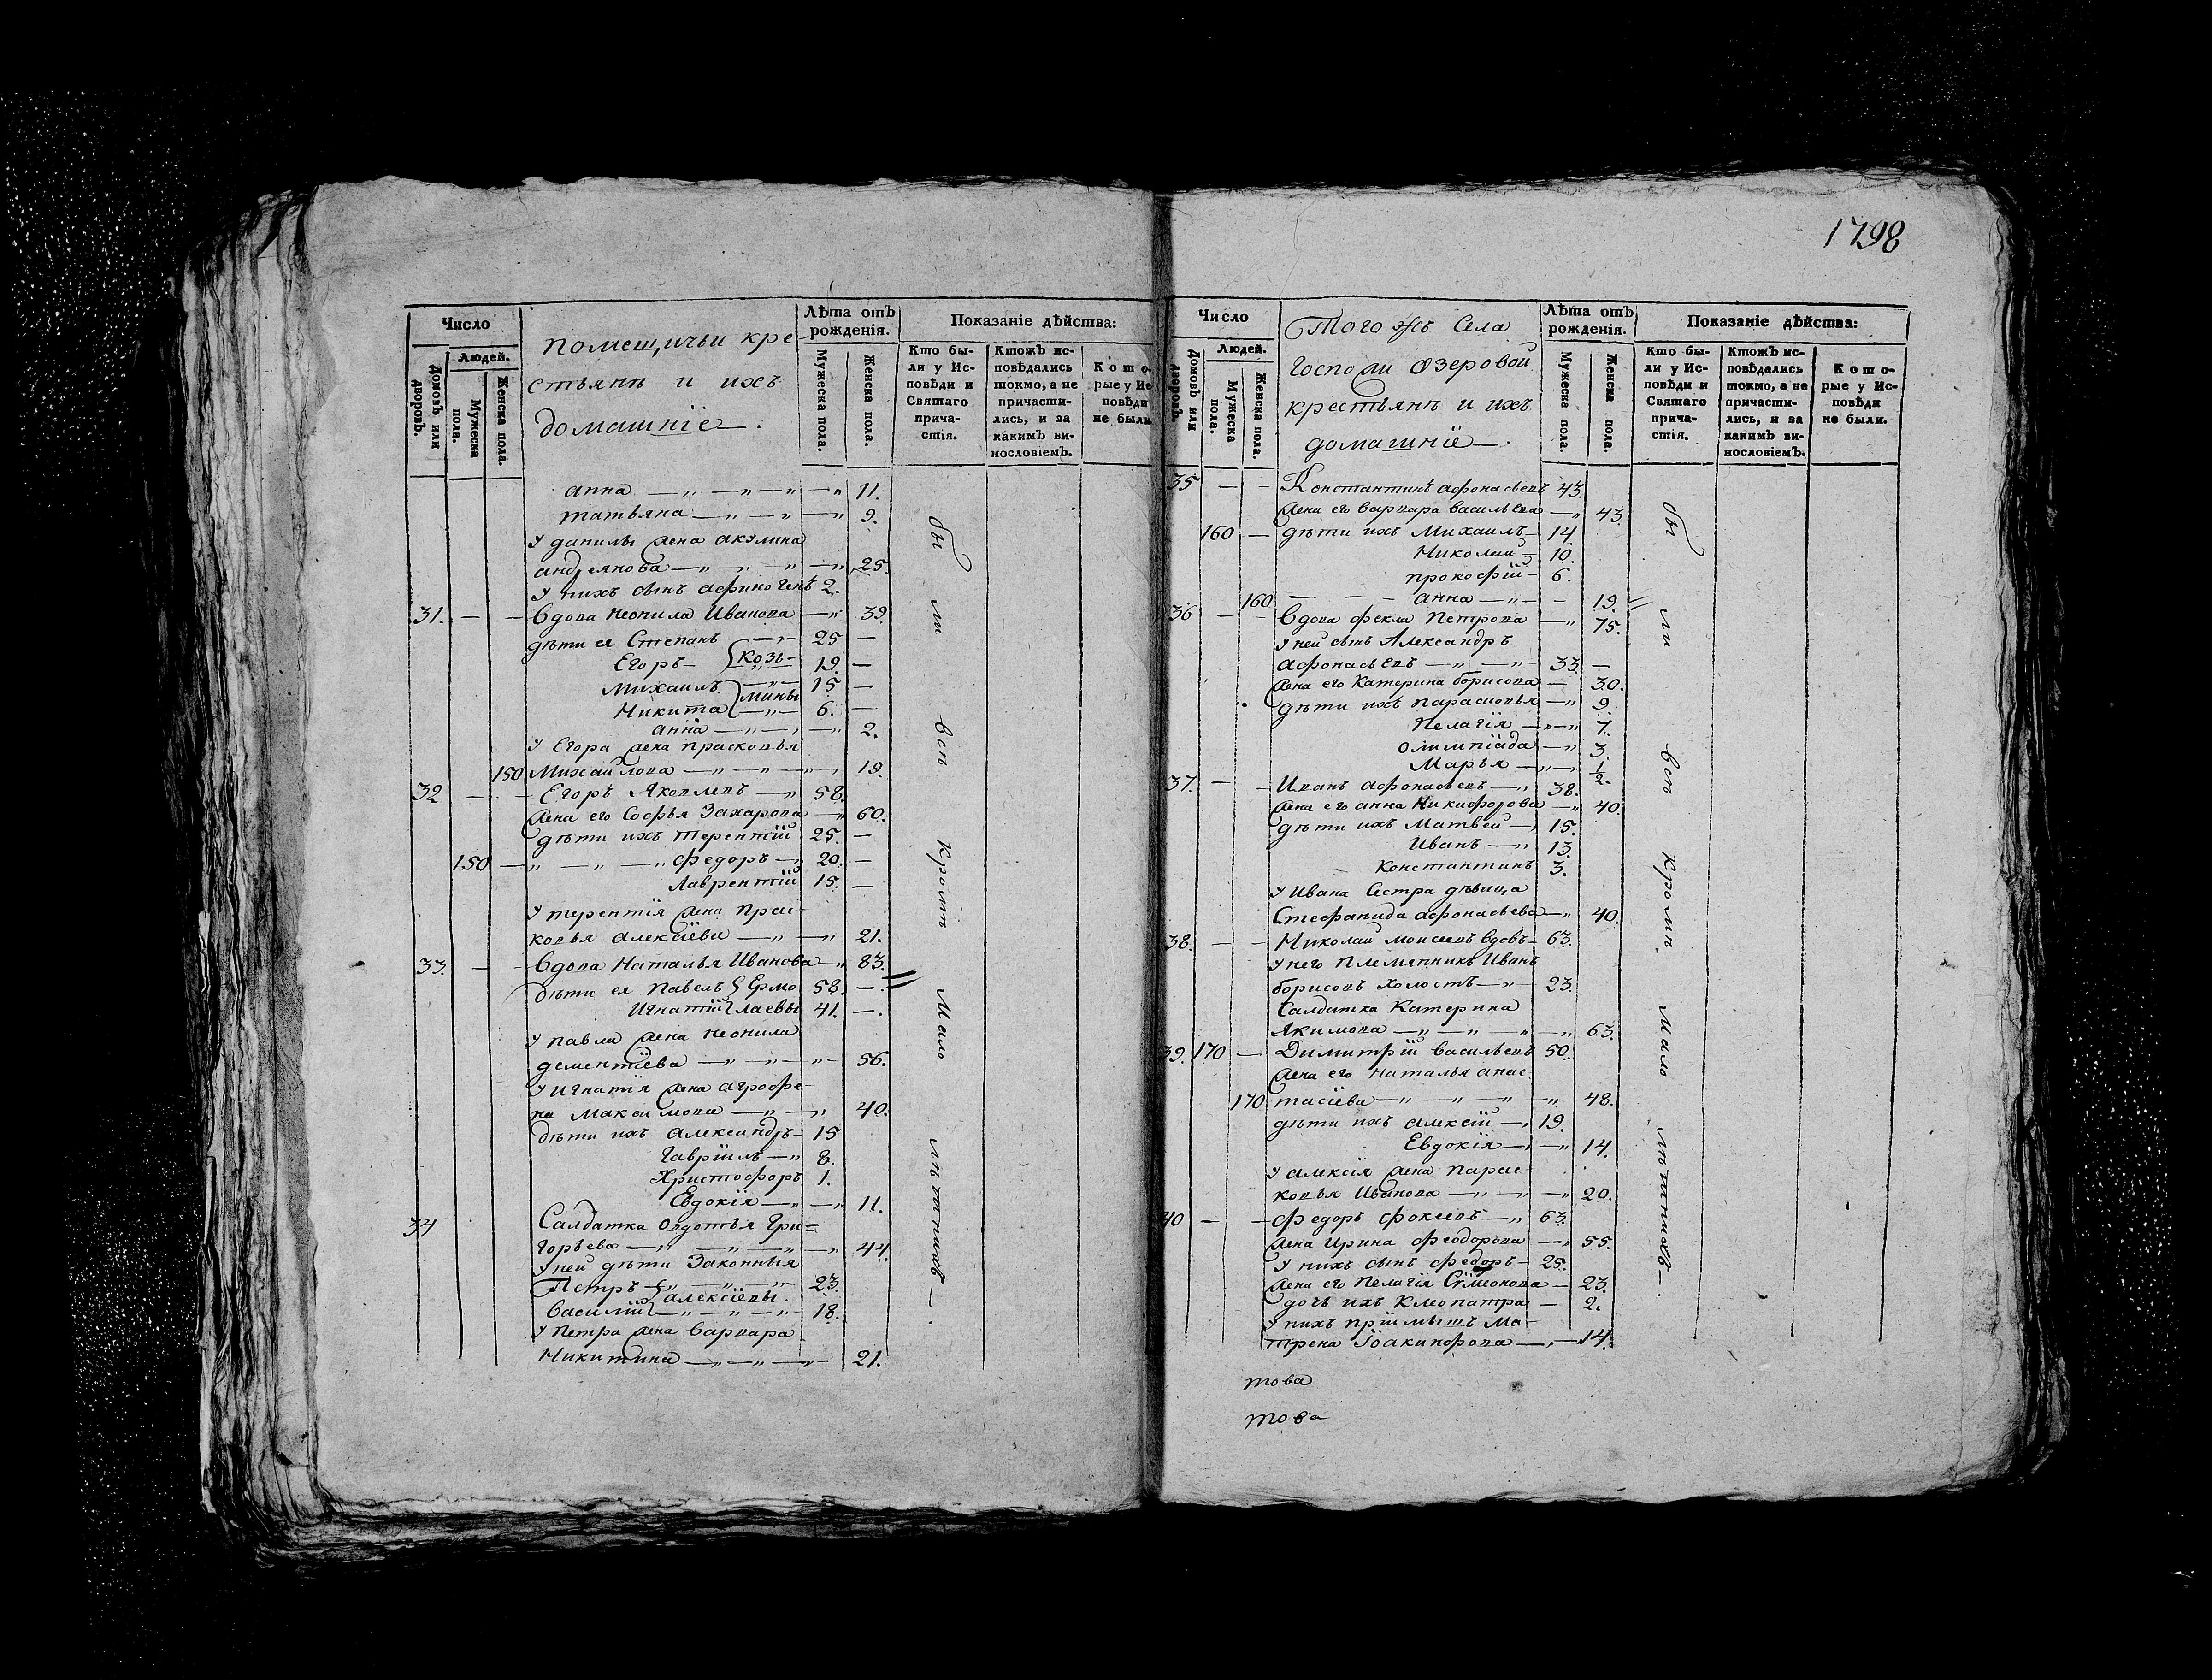 1798
Число
Людей.
Домовъ или дворовъ.
Мужеска пола.
Женска пола.
помещичьи кре-
стьянъ и ихъ
домашніе.
Лѣта отъ рожденія.
Мужеска пола.
Женска пола.
Показаніе дѣйства:
Кто бы-
ли у Ис-
повѣди и
Святаго
прича-
стія.
Ктожъ ис-
повѣдались
токмо, а не
причасти-
лись, и за
какимъ ви-
нословіемъ.
Кото-
рые у Ис
повѣди
не были
анна — „ — „ — „ — „ 11.
татьяна — „ — „ — „ 9.
У данилы жена акулина
андреянова — „ — „ — „ — „ 25.
У нихъ сынъ афиногенъ 2.
31. — — Вдова неонила Иванова — „ 39.
дѣти ея Степанъ — „ — 25 —
Егоръ — Козь- 19. —
Михаилъ — „ — 15 —
мины
Никита — „ — 6. —
анна — „ — „ — „ 2.
У Егора жена прасковья
150 Михайлова — „ — „ — „ 19.
32 — — Егоръ Яковлевъ — „ 58.
жена его Софья Захарова — „ 60.
дѣти ихъ терентій 25. —
150 — „ — „ — „ федоръ — „ 20. —
Лаврентій 15. —
У терентія жена прас-
ковья алексіева — „ — „ 21.
33. — — Вдова Наталья Иванова — „ 83.
дѣти ея павелъ Ермо 58. —
Игнатій лаевы 41. —.
У павла жена неонила
дементіева — „ — „ — „ — 56.
У Игнатія жена агрофе-
на Максимова — „ — „ 40.
дѣти ихъ александръ — 15
Гавріилъ — „ 8.
Христофоръ 1.
Евдокія — „ — „ 11.
34 Салдатка овдотья Гри=
горьева — „ — „ — „ — „ 44.
У ней дѣти Законныя
Петръ — „ — „ — „ — 23.
алексіевы.
Василій — „ — „ — „ — 18.
У петра жена варвара
Никитина — „ — „ — „ — 21.
бы ли всѣ кромѣ мало лѣтнихъ — .
Число
Людей.
Домовъ или дворовъ.
Мужеска пола.
Женска пола.
Того жъ Села
Госпожи Озеровой
крестьянъ и ихъ
домашніе.
Лѣта отъ рожденія.
Мужеска пола.
Женска пола.
Показаніе дѣйства:
Кто бы-
ли у Ис-
повѣди и
Святаго
прича-
стія.
Ктожъ ис-
повѣдались
токмо, а не
причасти-
лись, и за
какимъ ви-
нословіемъ.
Кото-
рые у Ис-
повѣди
не были.
35 — — Константинъ афонасьевъ 43.
жена его варвара васильева — „ 43.
160 — дѣти ихъ Михаилъ — 14
Николай — 10.
прокофій — 6.
160 — — — анна — „ — — 19.
36 — — Вдова фекла Петрова — „ 75.
У ней сынъ Александръ
афонасьевъ — „ — „ — 33. —
жена его Катерина борисова — 30.
дѣти ихъ парасковья — „ 9
Пелагія — „ — „ 7.
олимпіада — „ 3.
Марья — „ — 1/2.
37. — — Иванъ афонасьевъ — „ 38.
жена его анна Никифорова — „ 40.
дѣти ихъ Матвей — „ 15.
Иванъ — „ 13.
Константинъ 3.
У Ивана Сестра дѣвица
Стефанида афонасьева — „ 40.
38. — — Николай моисеевъ вдовъ — 63.
У него племянникъ Иванъ
борисовъ холостъ — „ — 23.
Салдатка Катерина
Якимова — „ — „ — „ — „ 63.
39. 170 — Димитрій васильевъ 50.
жена его Наталья анас-
170 тасіева — „ — „ — „ — „ 48.
дѣти ихъ алексій — „ 19.
Евдокія — „ — „ 14.
У алексія жена парас-
ковья Иванова — „ — „ — „ 20.
40 — — федоръ фокеевъ — „ 63.
жена Ирина феодорова — „ 55.
У нихъ сынъ федоръ — 25.
жена его пелагія Симеонова — 23.
дочъ ихъ клеопатра — 2.
У нихъ пріймышъ Ма-
трена Іоакинфова — „ — 14.
бы ли всѣ кромѣ мало лѣтнихъ — .
това
това